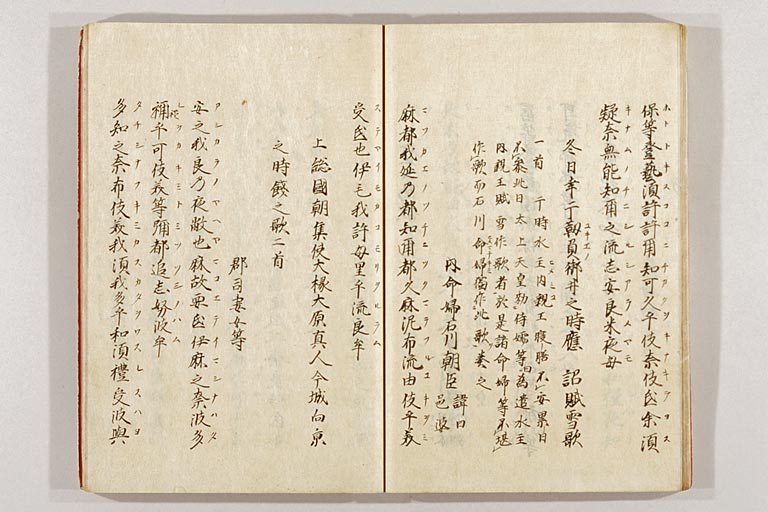 保等登藝須許許爾知可久乎伎奈伎弖余須
疑奈無能知爾之流志安良米夜母
冬日幸于靱負御井之時應 詔賦雪歌
一首 于時水主内親王寢膳不安累日
不参此日太上天皇勅侍嬬等曰為遣水主
内親王賦雪作歌者於是諸命婦等不堪
作歌而石川命婦獨作此歌奏之
内命婦石川朝臣 諱曰
邑婆
麻都我延乃都知爾都久麻泥布流由伎乎義
受弖也伊毛我許母里乎流良牟
上総國朝集使大掾大原真人今城向京
之時餞之歌二首
郡司妻女等
安之我良乃夜敝也麻故要弖伊麻之奈波多
禰乎可伎義等彌都追志努波牟
多知之奈布伎義我須我多乎和須禮受波與